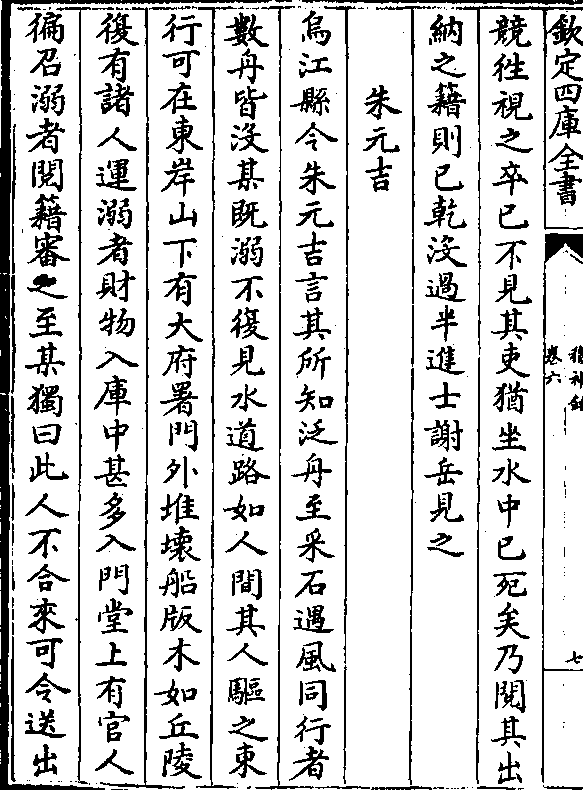 欽定四庫全書
稽神錄
卷六
七
競徃視之卒已不見其吏猶坐水中已死矣乃閱其出
納之籍則已乾沒過半進士謝岳見之
朱元吉
烏江縣令朱元吉言其所知泛舟至采石遇風同行者
數舟皆沒某既溺不復見水道路如人間其人驅之東
行可在東岸山下有大府署門外堆壞船版木如丘陵
復有諸人運溺者財物入庫中甚多入門堂上有官人
徧召溺者閱籍審之至某獨曰此人不合來可令送出